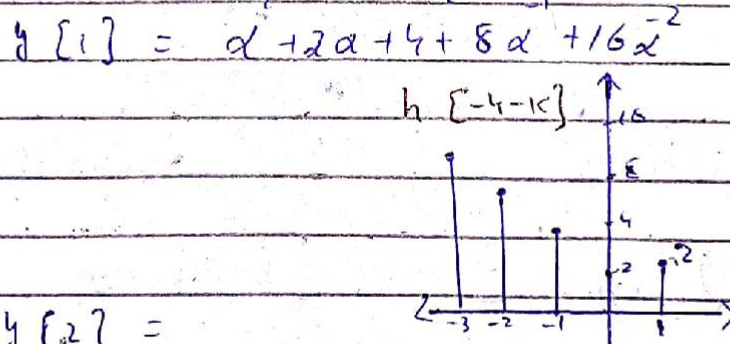 y [1] = α + 2α + 4 + 8α⁻¹ + 16α⁻²
h [-4-k]
16
8
4
2
2
-3 -2 -1 1
y [2] =